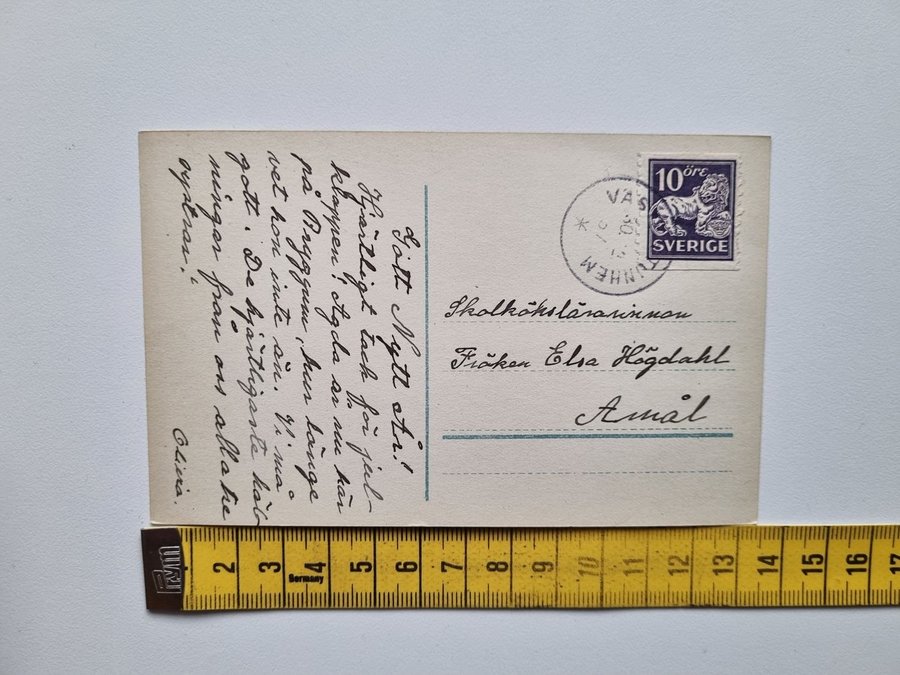 Gott Nytt År!
Hjärtligt tack för jul-
klappen! Agda är nu här
på Bryggum, hur länge
vet hon inte än. Vi må
gott. De hjärtligaste häls
ningar från oss alla tre
systrar.
Olivia.
10 ÖRE
SVERIGE
VÄS TUNHEM
30
Skolkökslärarinnan
Fröken Elsa Högdahl
Åmål
2 3 4 5 6 7 8 9 10 11 12 13 14 15 16 17
Germany